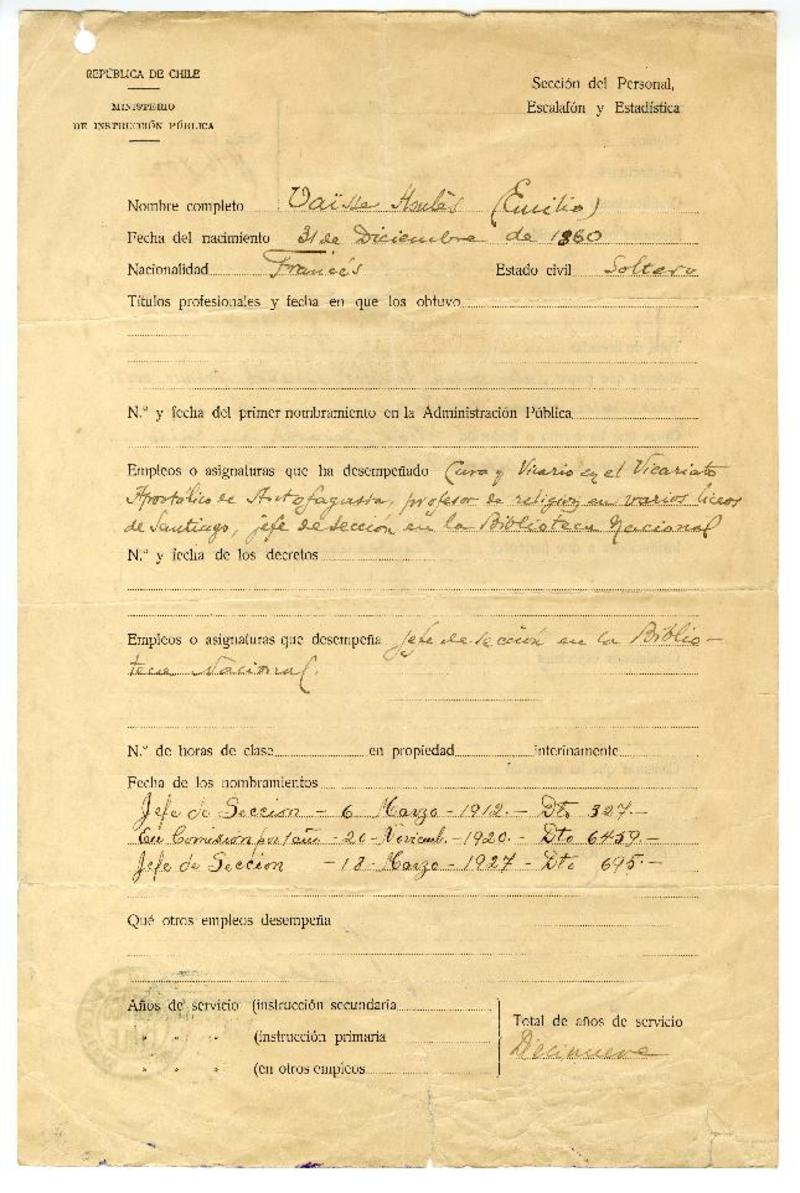 REPÚBLICA DE CHILE
MINISTERIO
DE INSTRUCCIÓN PÚBLICA
Sección del Personal,
Escalafón y Estadística
Nombre completo Vaïsse (Emilio)
Fecha del nacimiento 31 de Diciembre de 1860
Nacionalidad Francés Estado civil Soltero
Títulos profesionales y fecha en que los obtuvo
N.º y fecha del primer nombramiento en la Administración Pública
Empleos o asignaturas que ha desempeñado Cura y Vicario en el Vicariato
Apostólico de Antofagasta, profesor de religion en varios liceos
de Santiago, jefe de sección en la Biblioteca Nacional
N.º y fecha de los decretos
Empleos o asignaturas que desempeña Jefe de sección en la Biblio-
teca Nacional.
N.º de horas de clase en propiedad interinamente
Fecha de los nombramientos
Jefe de Seccion - 6 Marzo - 1912. - Dto 327. -
En Comision por 1 año - 20 - Noviemb. - 1920. - Dto 6459. -
Jefe de Seccion - 18 - Marzo - 1927 - Dto 695. -
Qué otros empleos desempeña
Años de servicio (instrucción secundaria
" " " (instrucción primaria
" " " (en otros empleos
Total de años de servicio
Diecinueve